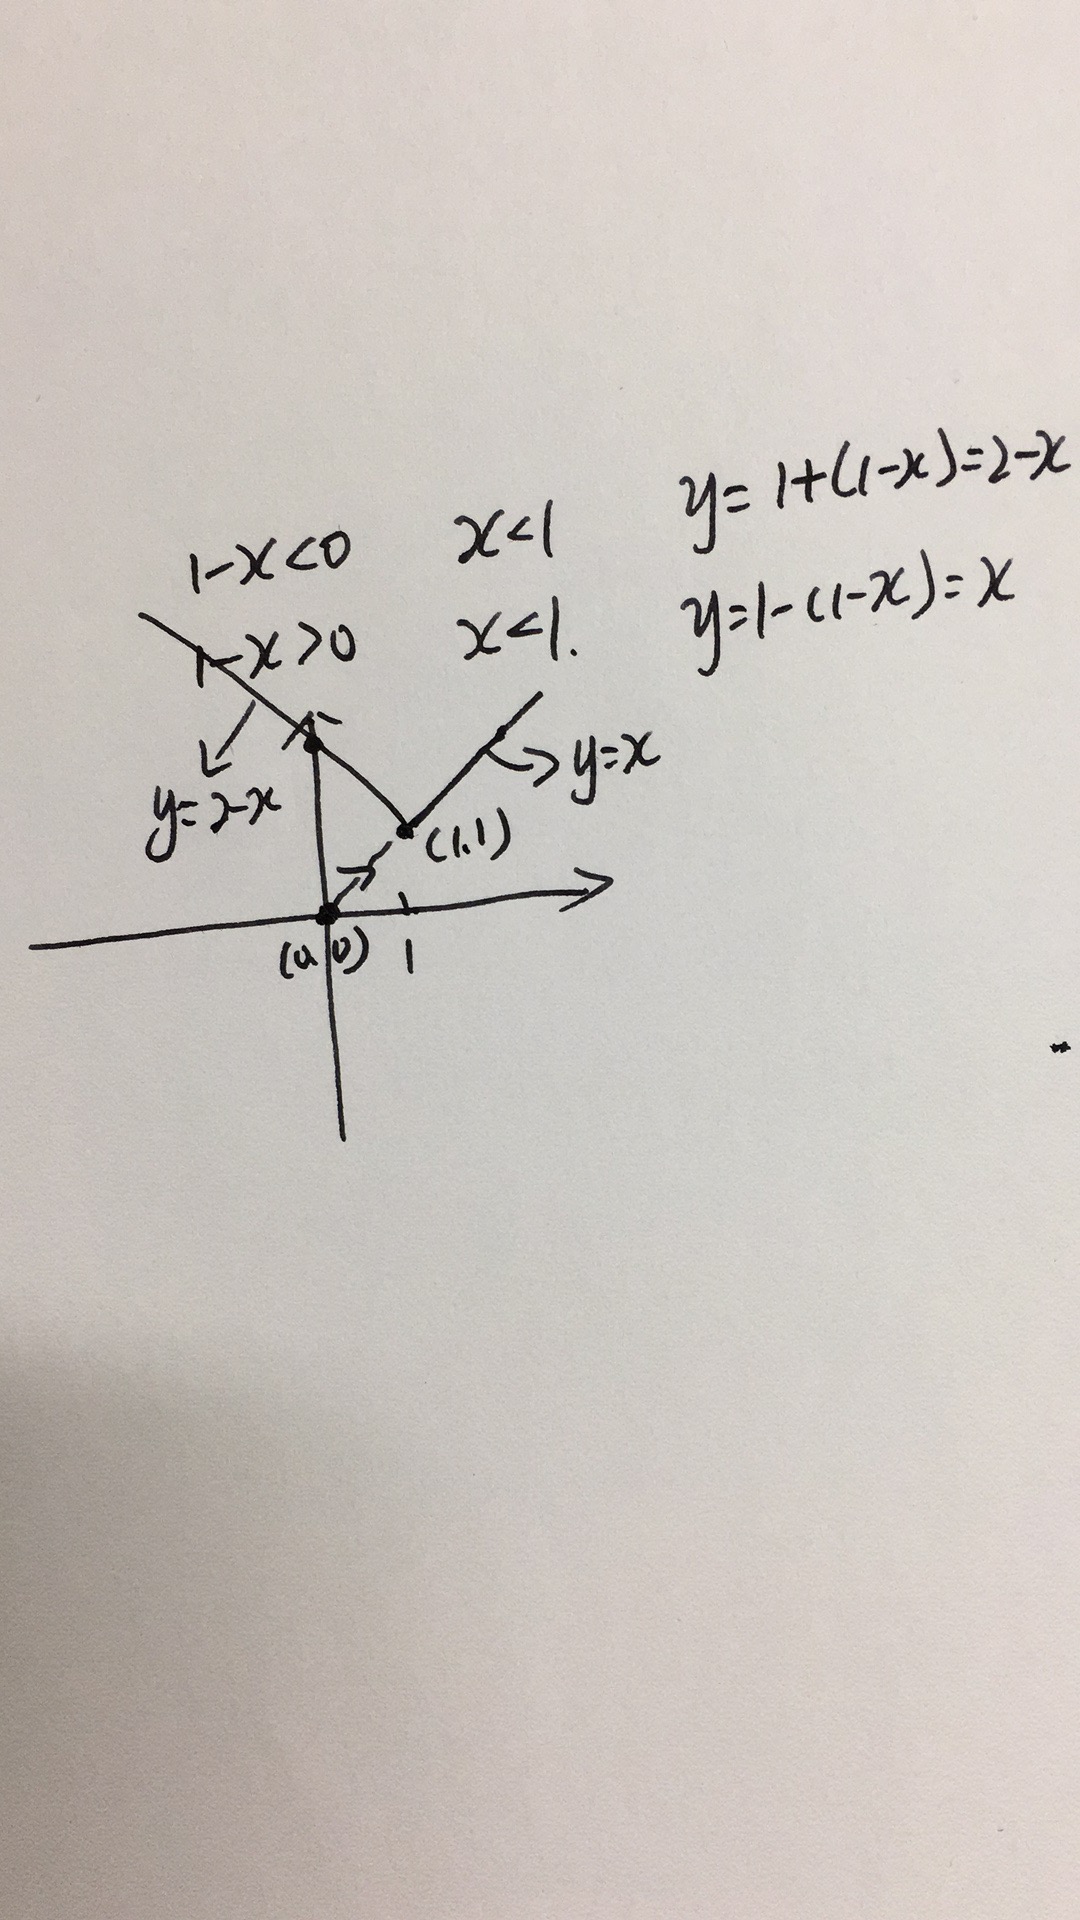 1-x<0 x<1 y=1+(1-x)=2-x
1-x>0 x<1. y=1-(1-x)=x
y=2-x
y=x
(1,1)
(0,0) 1